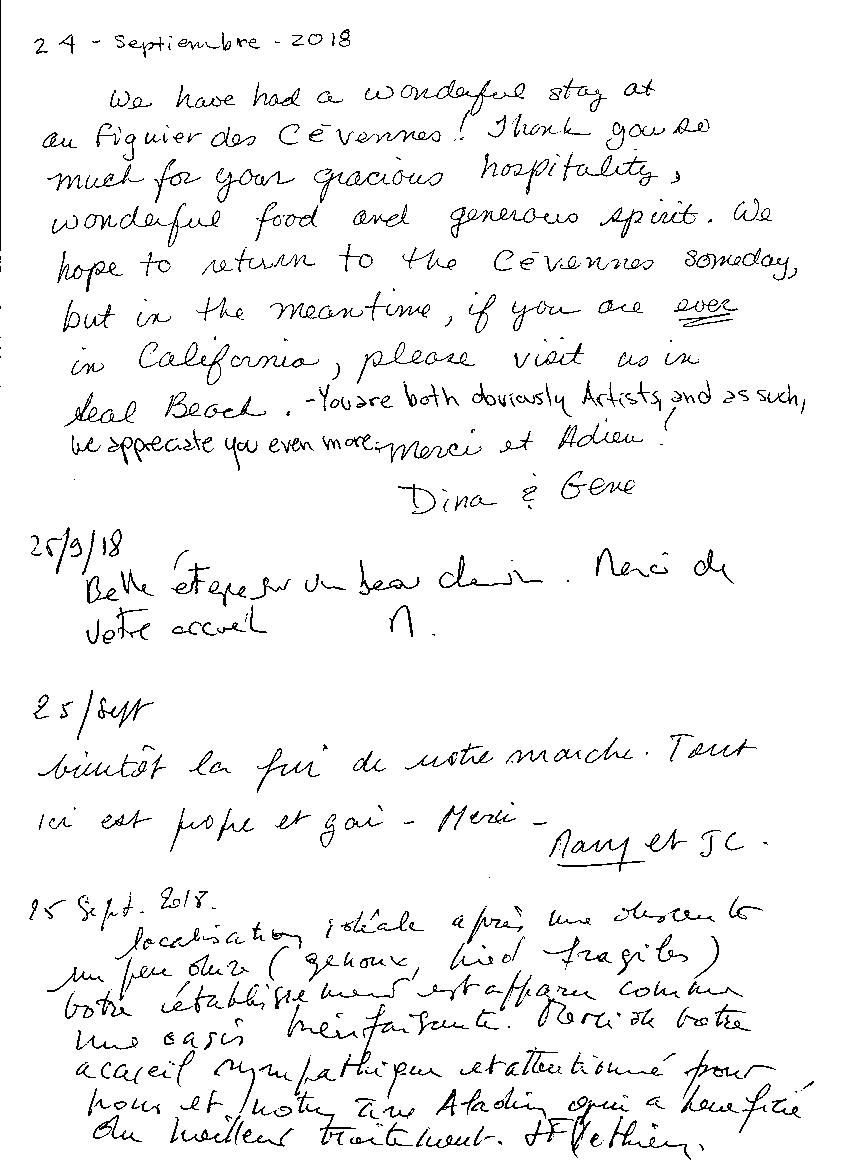 24 - Septiembre - 2018
We have had a wonderful stay at
au Figuier des Cévennes! Thank you so
much for your gracious hospitality,
wonderful food and generous spirit. We
hope to return to the Cévennes someday,
but in the meantime, if you are ever
in California, please visit us in
Seal Beach. - You are both obviously Artists, and as such,
we appreciate you even more. Merci et Adieu!
Dina & Gene
25/9/18
Belle étape sur un beau chemin. Merci de
votre accueil
25/Sept
bientôt la fin de notre marche. Tout
ici est propre et gai - Merci -
et JC.
25 Sept. 2018.
localisation idéale après une descente
un peu dure (genoux, pied fragiles)
votre établissement est apparu comme
une oasis bienfaisante. Merci de votre
accueil sympathique et attentionné pour
nous et notre âne Aladin qui a bénéficié
du meilleur traitement.